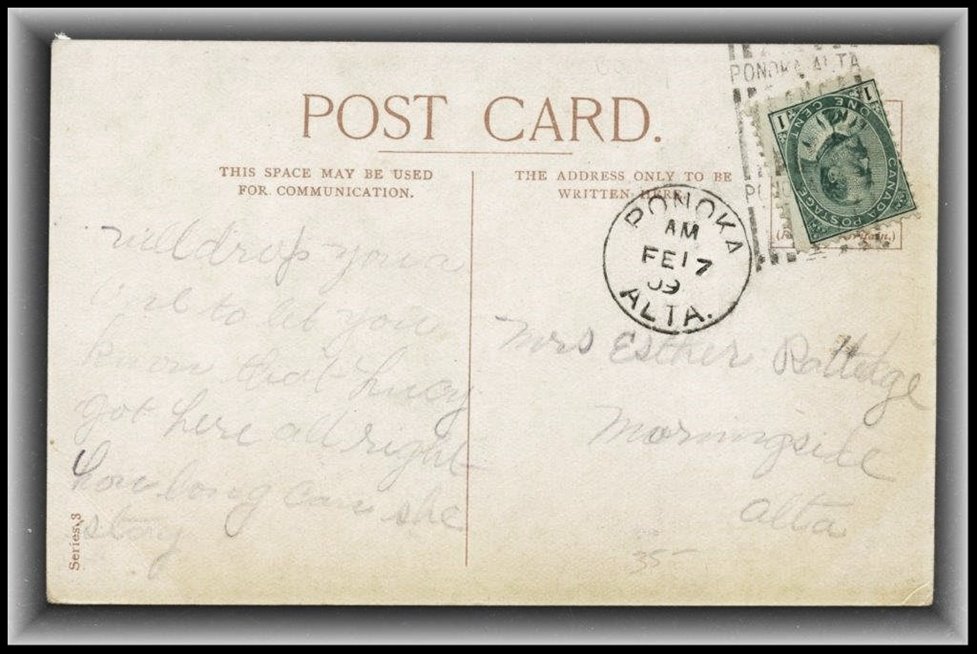 PONOKA ALTA
POST CARD.
THIS SPACE MAY BE USED
FOR COMMUNICATION.
THE ADDRESS ONLY TO BE
WRITTEN HERE.
1 ONE CENT 1
CANADA POSTAGE
PONOKA
AM
FE 17
09
ALTA.
will drop you a
line to let you
know that Lucy
got here all right
how long can she
stay
Mrs Esther
Morningside
alta
35
Series 3